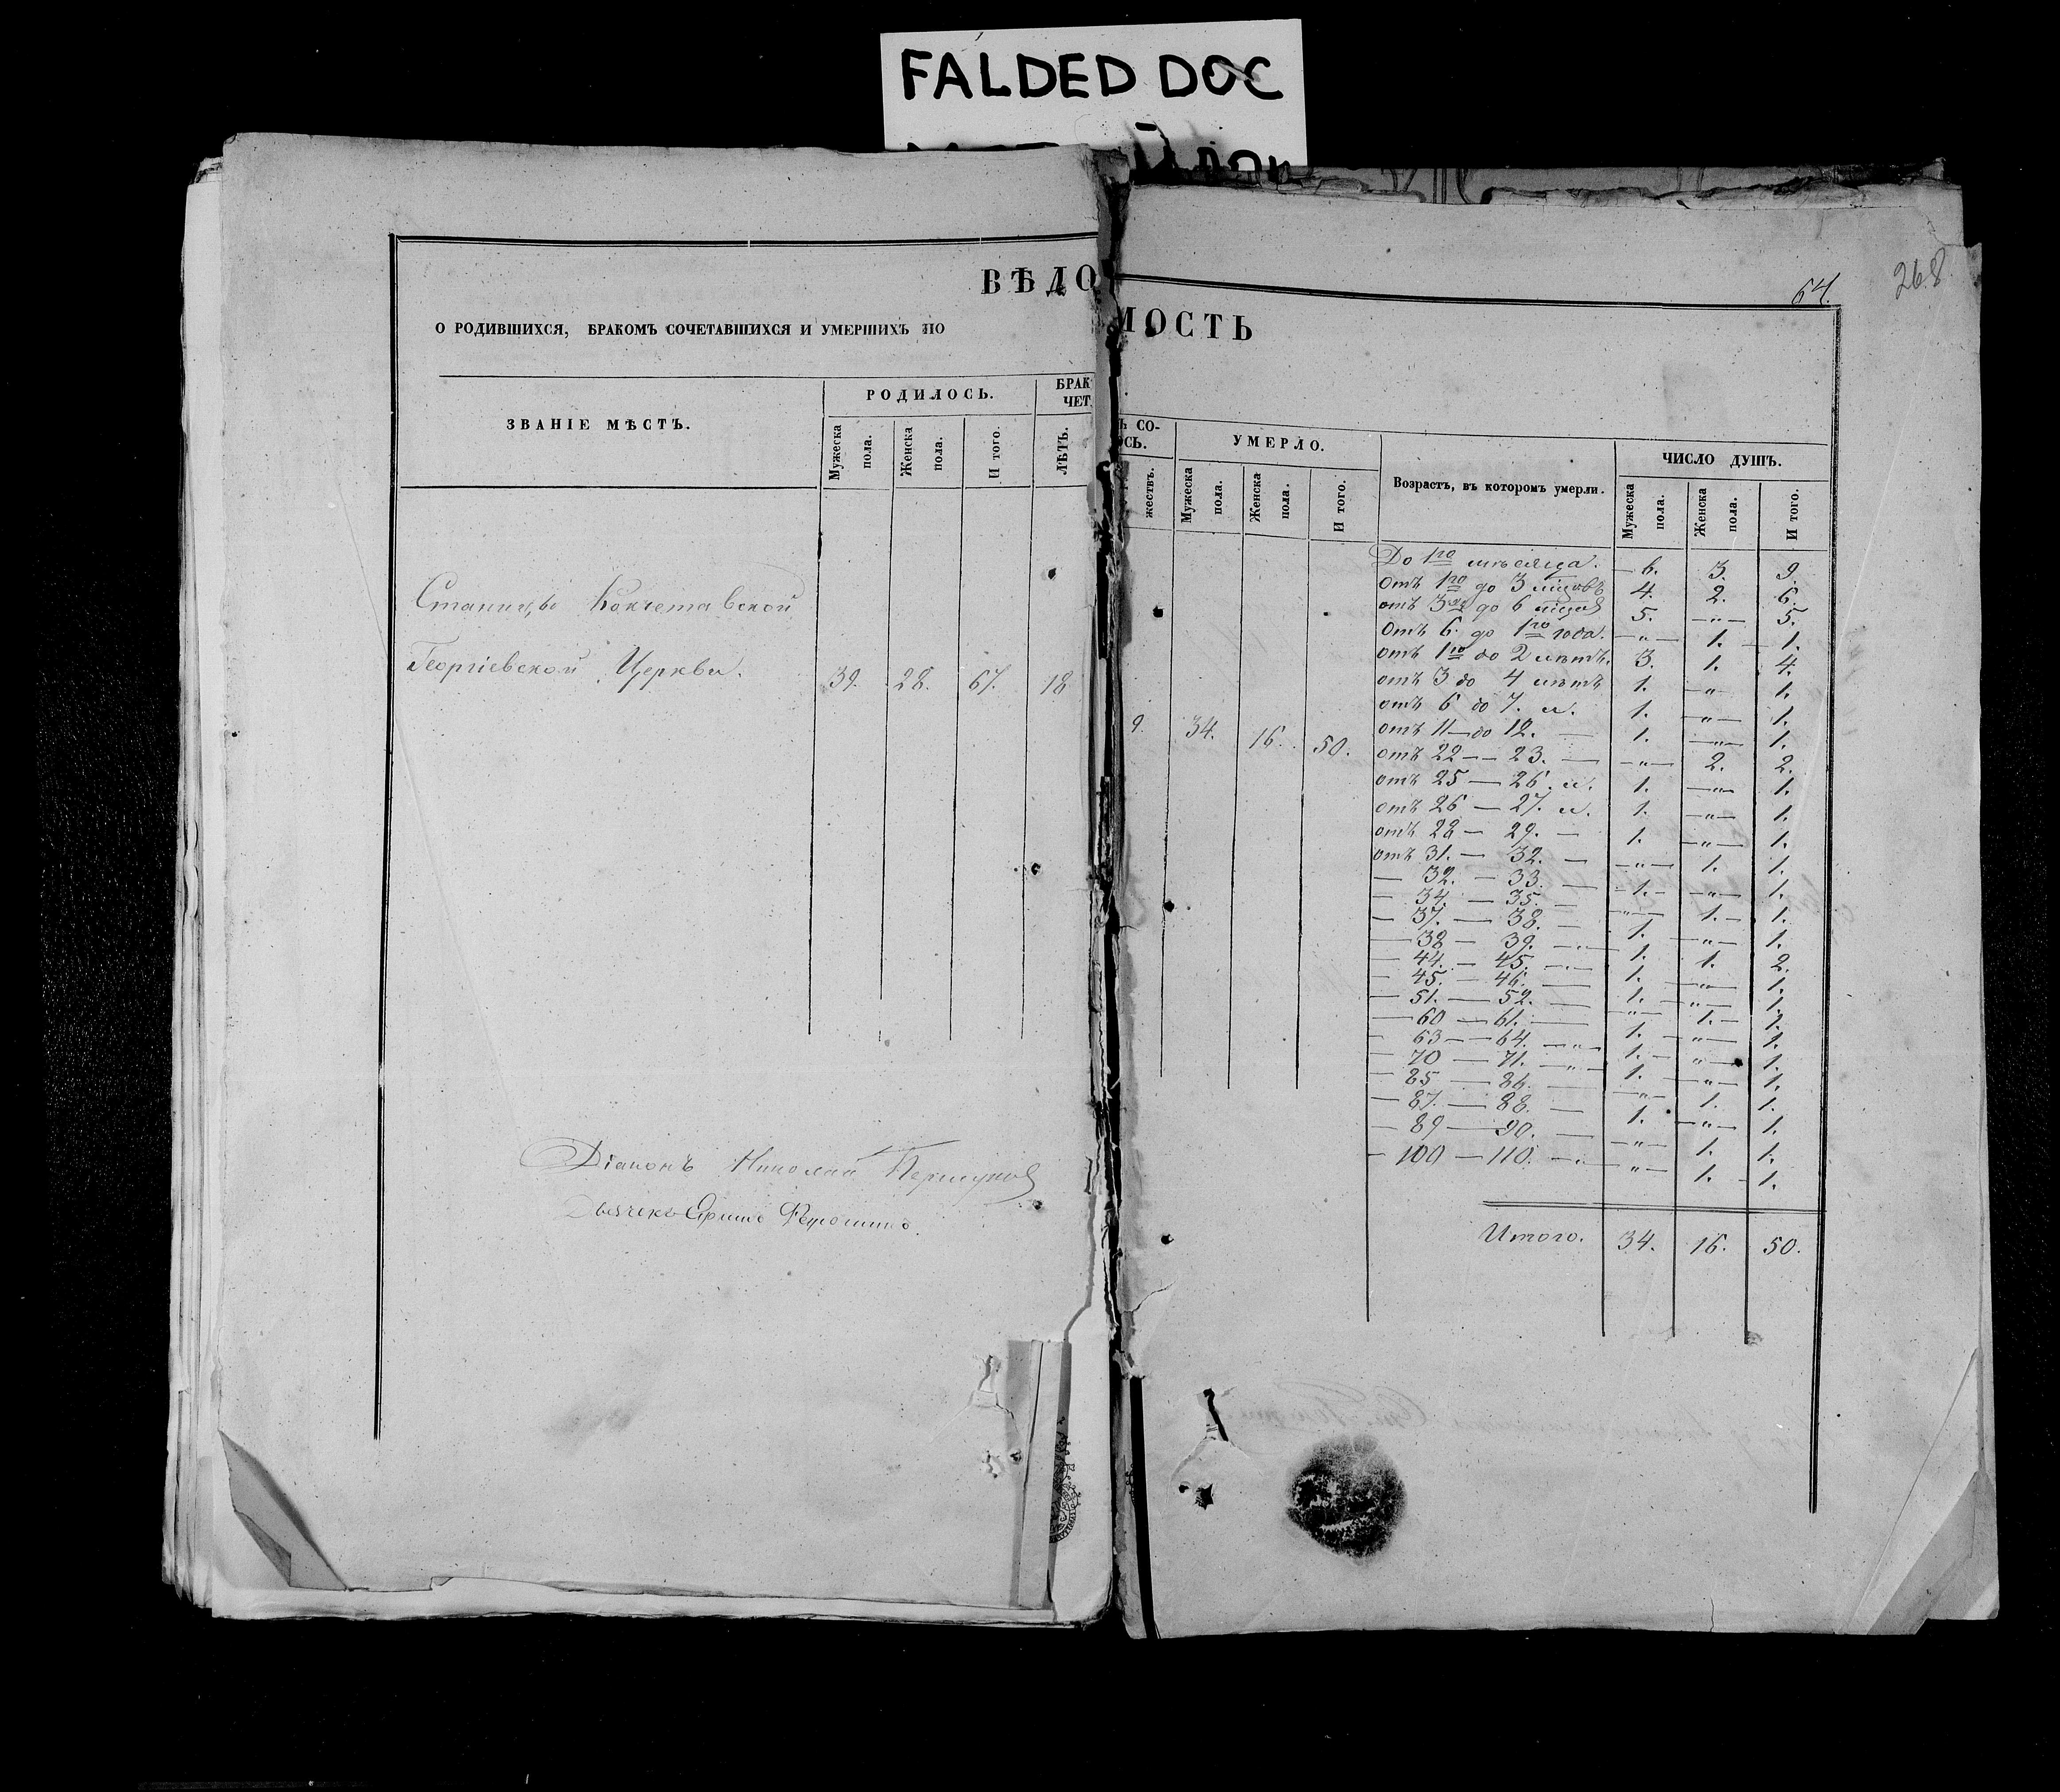 FALDED DOC
ВѢДО
МОСТЬ
64.
268
О РОДИВШИХСЯ, БРАКОМЪ СОЧЕТАВШИХСЯ И УМЕРШИХЪ ПО
ЗВАНІЕ МѢСТЪ.
РОДИЛОСЬ.
БРАК
ЧЕТ
Мужеска пола.
Женска пола.
И того.
ЛѢТЪ.
Станицы Кокчетавской
Георгіевской Церкви. 39. 28. 67. 18
Діаконъ Николай
Ъ СО-
ОСЬ.
жествъ.
УМЕРЛО.
Мужеска пола.
Женска пола.
И того.
Возрастъ, въ которомъ умерли.
ЧИСЛО ДУШЪ.
Мужеска пола.
Женска пола.
И того.
9. 34. 16. 50.
До 1го мѣсяца. — 6. 3. 9.
Отъ 1го до 3 мѣцовъ 4. 2. 6.
отъ 3хъ до 6 5. —"— 5.
Отъ 6. до 1го года. —"— 1. 1.
отъ 1го до 2 лѣтъ. 3. 1. 4.
отъ 3 до 4 лѣтъ 1. —"— 1.
отъ 6 до 7. л. 1. —"— 1.
отъ 11 — до 12. — 1. —"— 1.
отъ 22 — 23. — —"— 2. 2.
отъ 25 — 26. л. 1. —"— 1.
отъ 26 — 27. л. 1. —"— 1.
отъ 28 — 29. — 1. —"— 1.
отъ 31. — 32. — —"— 1. 1.
— 32. — 33. — 1. —"— 1.
— 34. — 35. — —"— 1. 1.
— 37. — 38. — 1. —"— 1.
— 38 — 39. —"— 1. 1. 2.
— 44. — 45. —"— 1. —"— 1.
— 45. — 46. — 1. —"— 1.
— 51. — 52. — —"— 1. 1.
— 60 — 61. — 1. —"— 1.
— 63 — 64. —"— 1. —"— 1.
— 70 — 71. —"— 1. —"— 1.
— 85 — 86. — —"— 1. 1.
— 87. — 88. — 1. —"— 1.
— 89 — 90. — —"— 1. 1.
— 100 — 110. —"— —"— 1. 1.
Итого. 34. 16. 50.